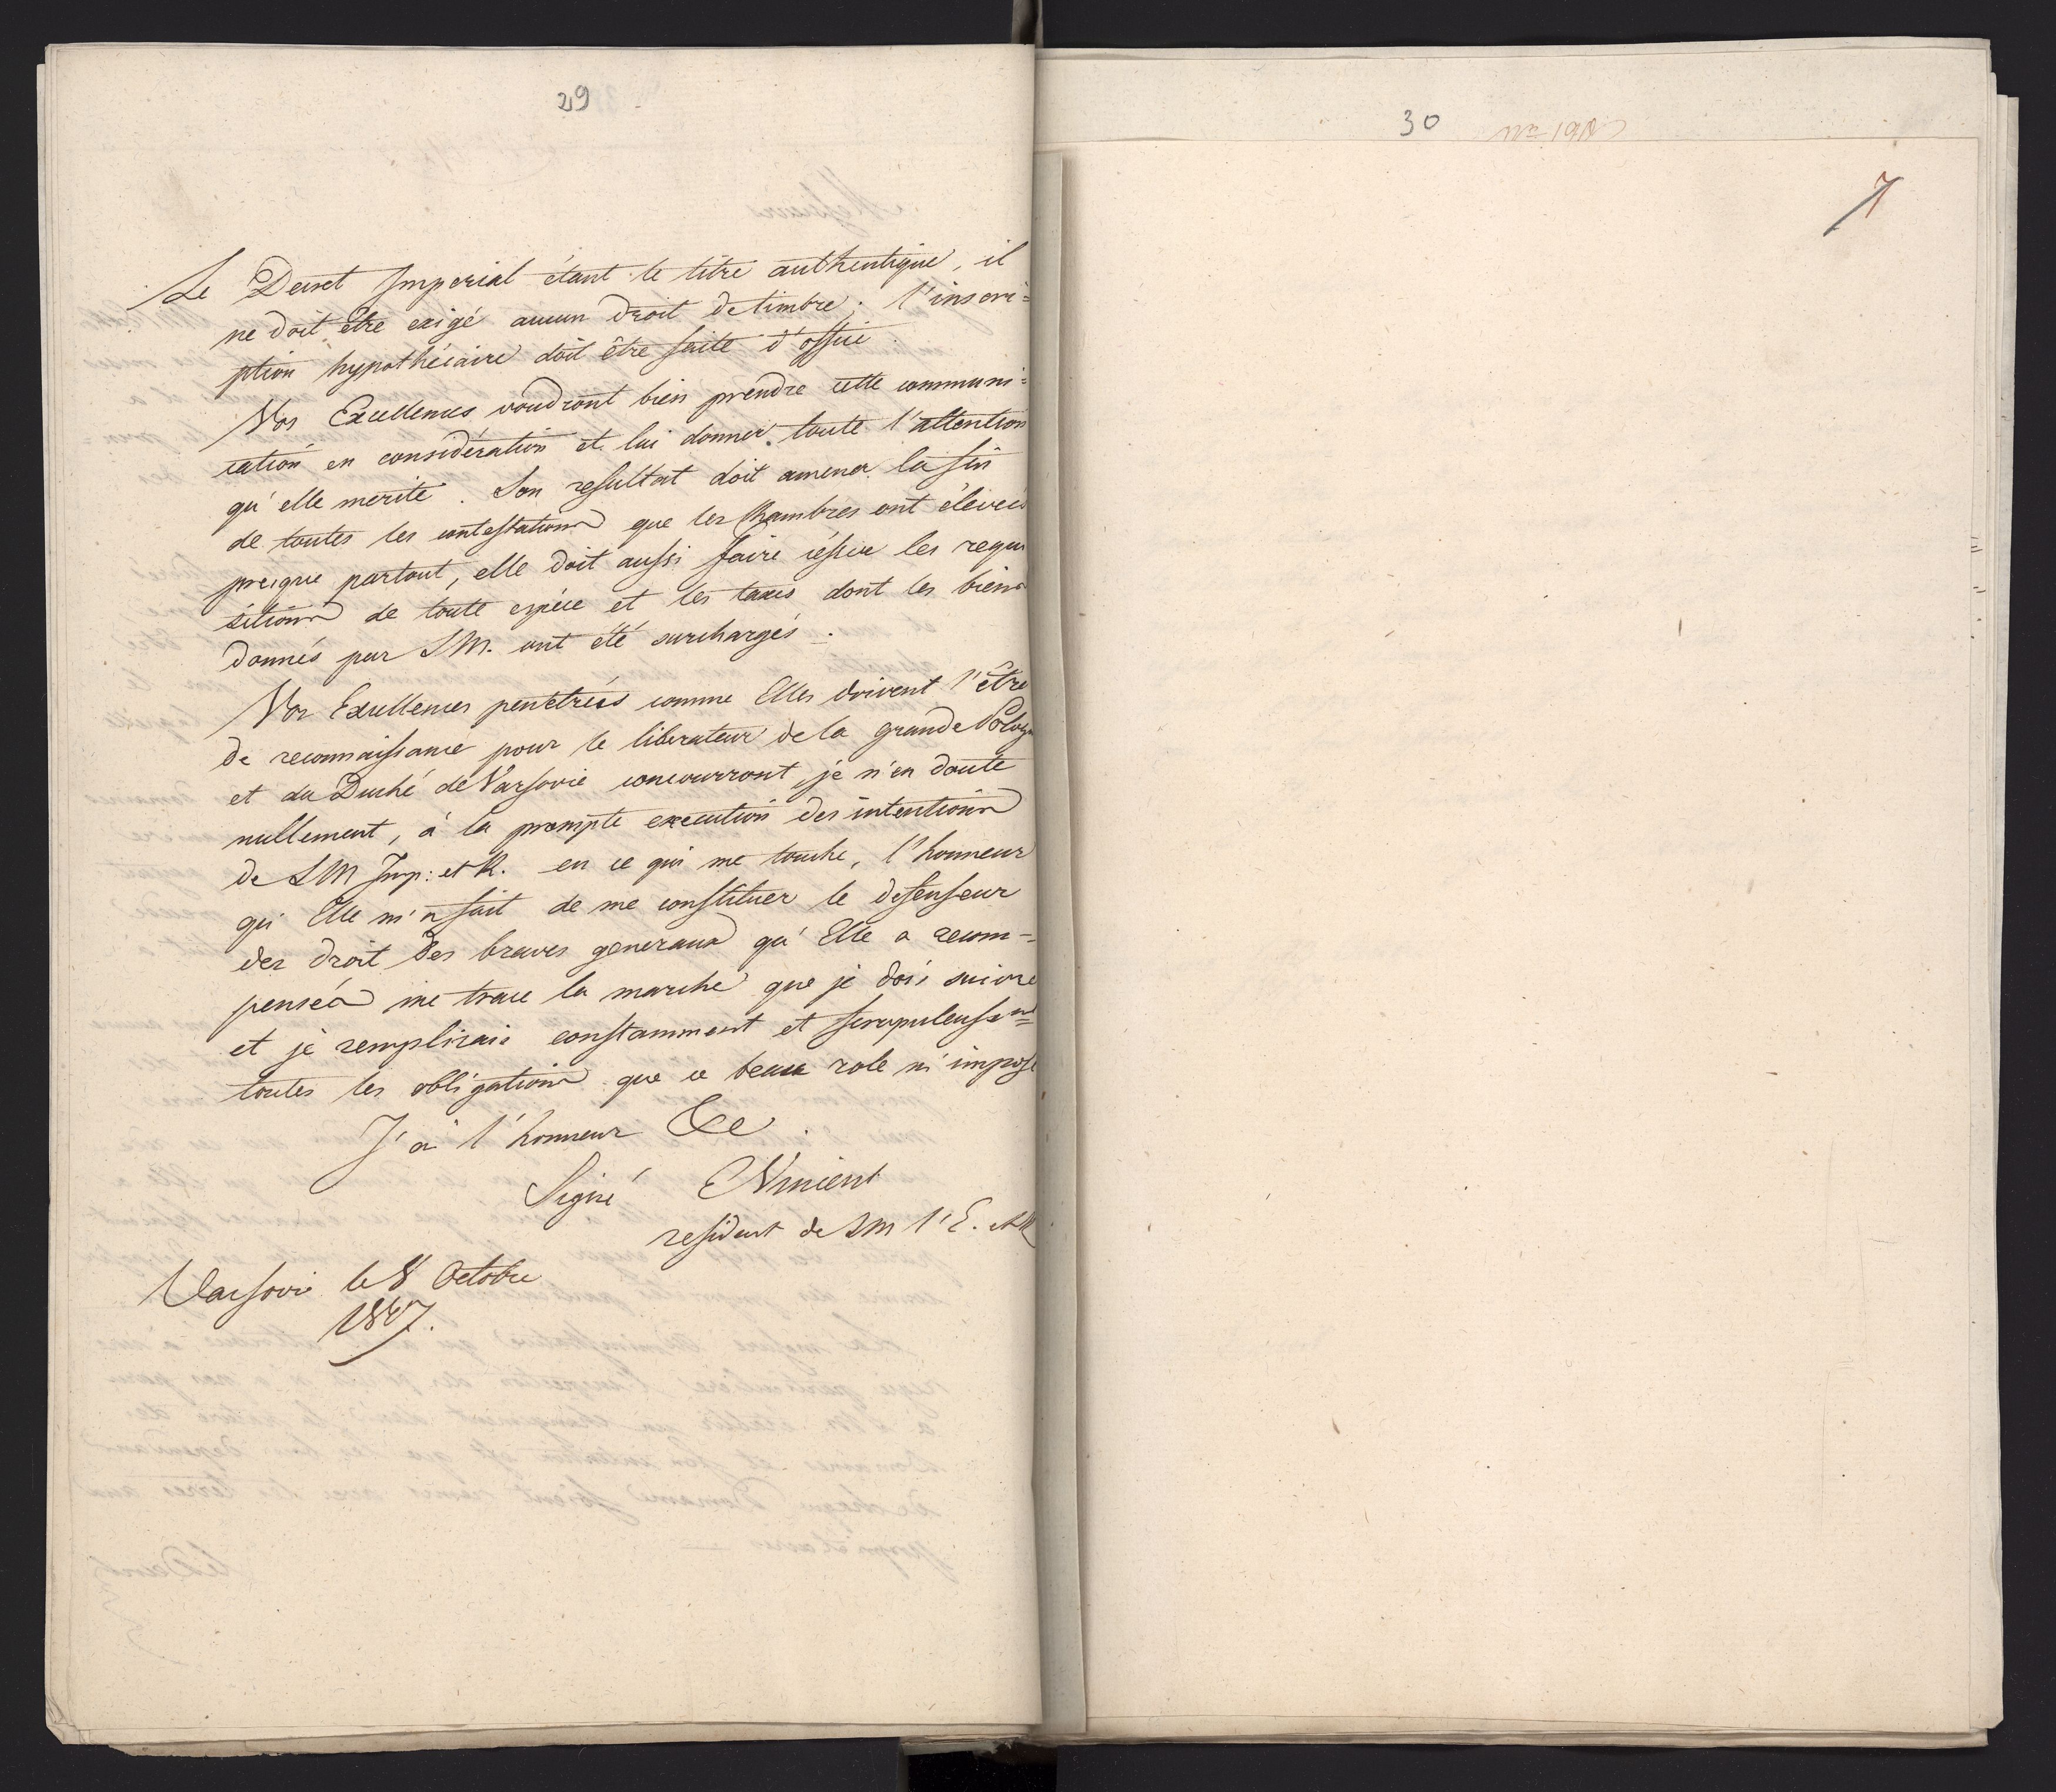 29
Le Decret Imperial étant le titre authentique, il
ne doit être exigé aucun droit de timbre; l'inscri=
ption hypothécaire doit être faite d'office.
Vos Excellences voudront bien prendre cette communi=
cation en considération et lui donner toute l'attention
qu'elle merite. Son resultat doit amener la fin
de toutes les contestations que les Chambres ont élevées
presque partout, elle doit aussi faire césser les requi
sitions de toute espèce et les taxes dont les biens
donnés par S M. ont été surchargés.
Vos Excellences penétrées comme Elles doivent l'être
de reconnaissance pour le liberateur de la grande Polog
et du Duché de Varsovie concourront, je n'en doute
nullement, à la prompte execution des intentions
de S M Imp: et R. en ce qui me touche, l'honneur
qu' Elle m'a fait de me constituer le defenseur
des droit des braves generaux qu' Elle a recom=
pensés me trace la marche que je dois suivre
et je remplirais constamment et scrupuleusemt
toutes les obligations que ce beau role m'impose
J'ai l'honneur &c
Signé Vincent
resident de S M l'E. et R
Varsovie le 8 Octobre
1807.
30
7